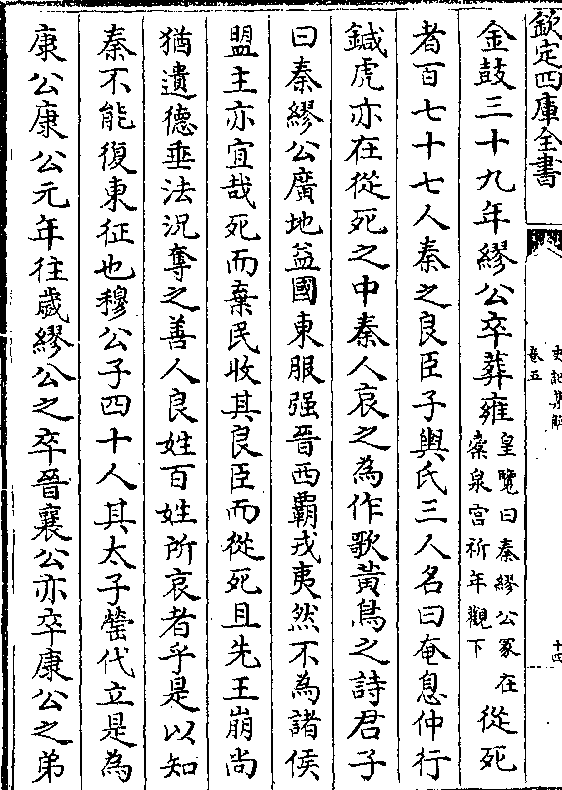 欽定四庫全書
史記集解
卷五
十四
金鼓三十九年繆公卒葬雍皇覽曰秦繆公冢在橐泉宮祈年觀下從死
者百七十七人秦之良臣子輿氏三人名曰奄息仲行
鍼虎亦在從死之中秦人哀之為作歌黃鳥之詩君子
曰秦繆公廣地益國東服强晉西霸戎夷然不為諸侯
盟主亦宜哉死而棄民收其良臣而從死且先王崩尚
猶遺德垂法況奪之善人良姓百姓所哀者乎是以知
秦不能復東征也穆公子四十人其太子罃代立是為
康公康公元年往歲繆公之卒晉襄公亦卒康公之弟